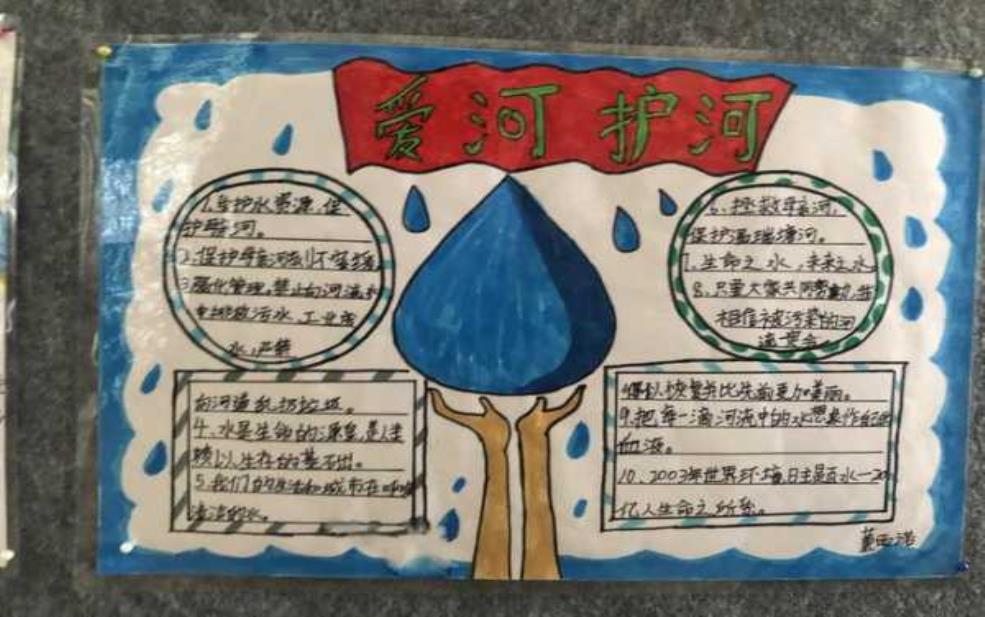 爱河护河
1.爱护水资源、保
护母亲河。
2.保护母亲河刻不容缓
3强化管理,禁止向河流水
中排放污水、工业废
水,严禁
向河道乱扔垃圾。
4、水是生命的源泉,是人类
赖以生存的基
5.我们的生活和城市在呼唤
洁净的水。
6、拯救母亲河,
保护温瑞塘河。
7.生命之水,未来之水
8、只要大家共同努力,我
相信被污染的河
道
得以恢复并比先前更加美丽。
9.把每一滴河流中的水想象作自己的
血液。
10、2003年世界环境日主题百水一20
亿人生命之所系。